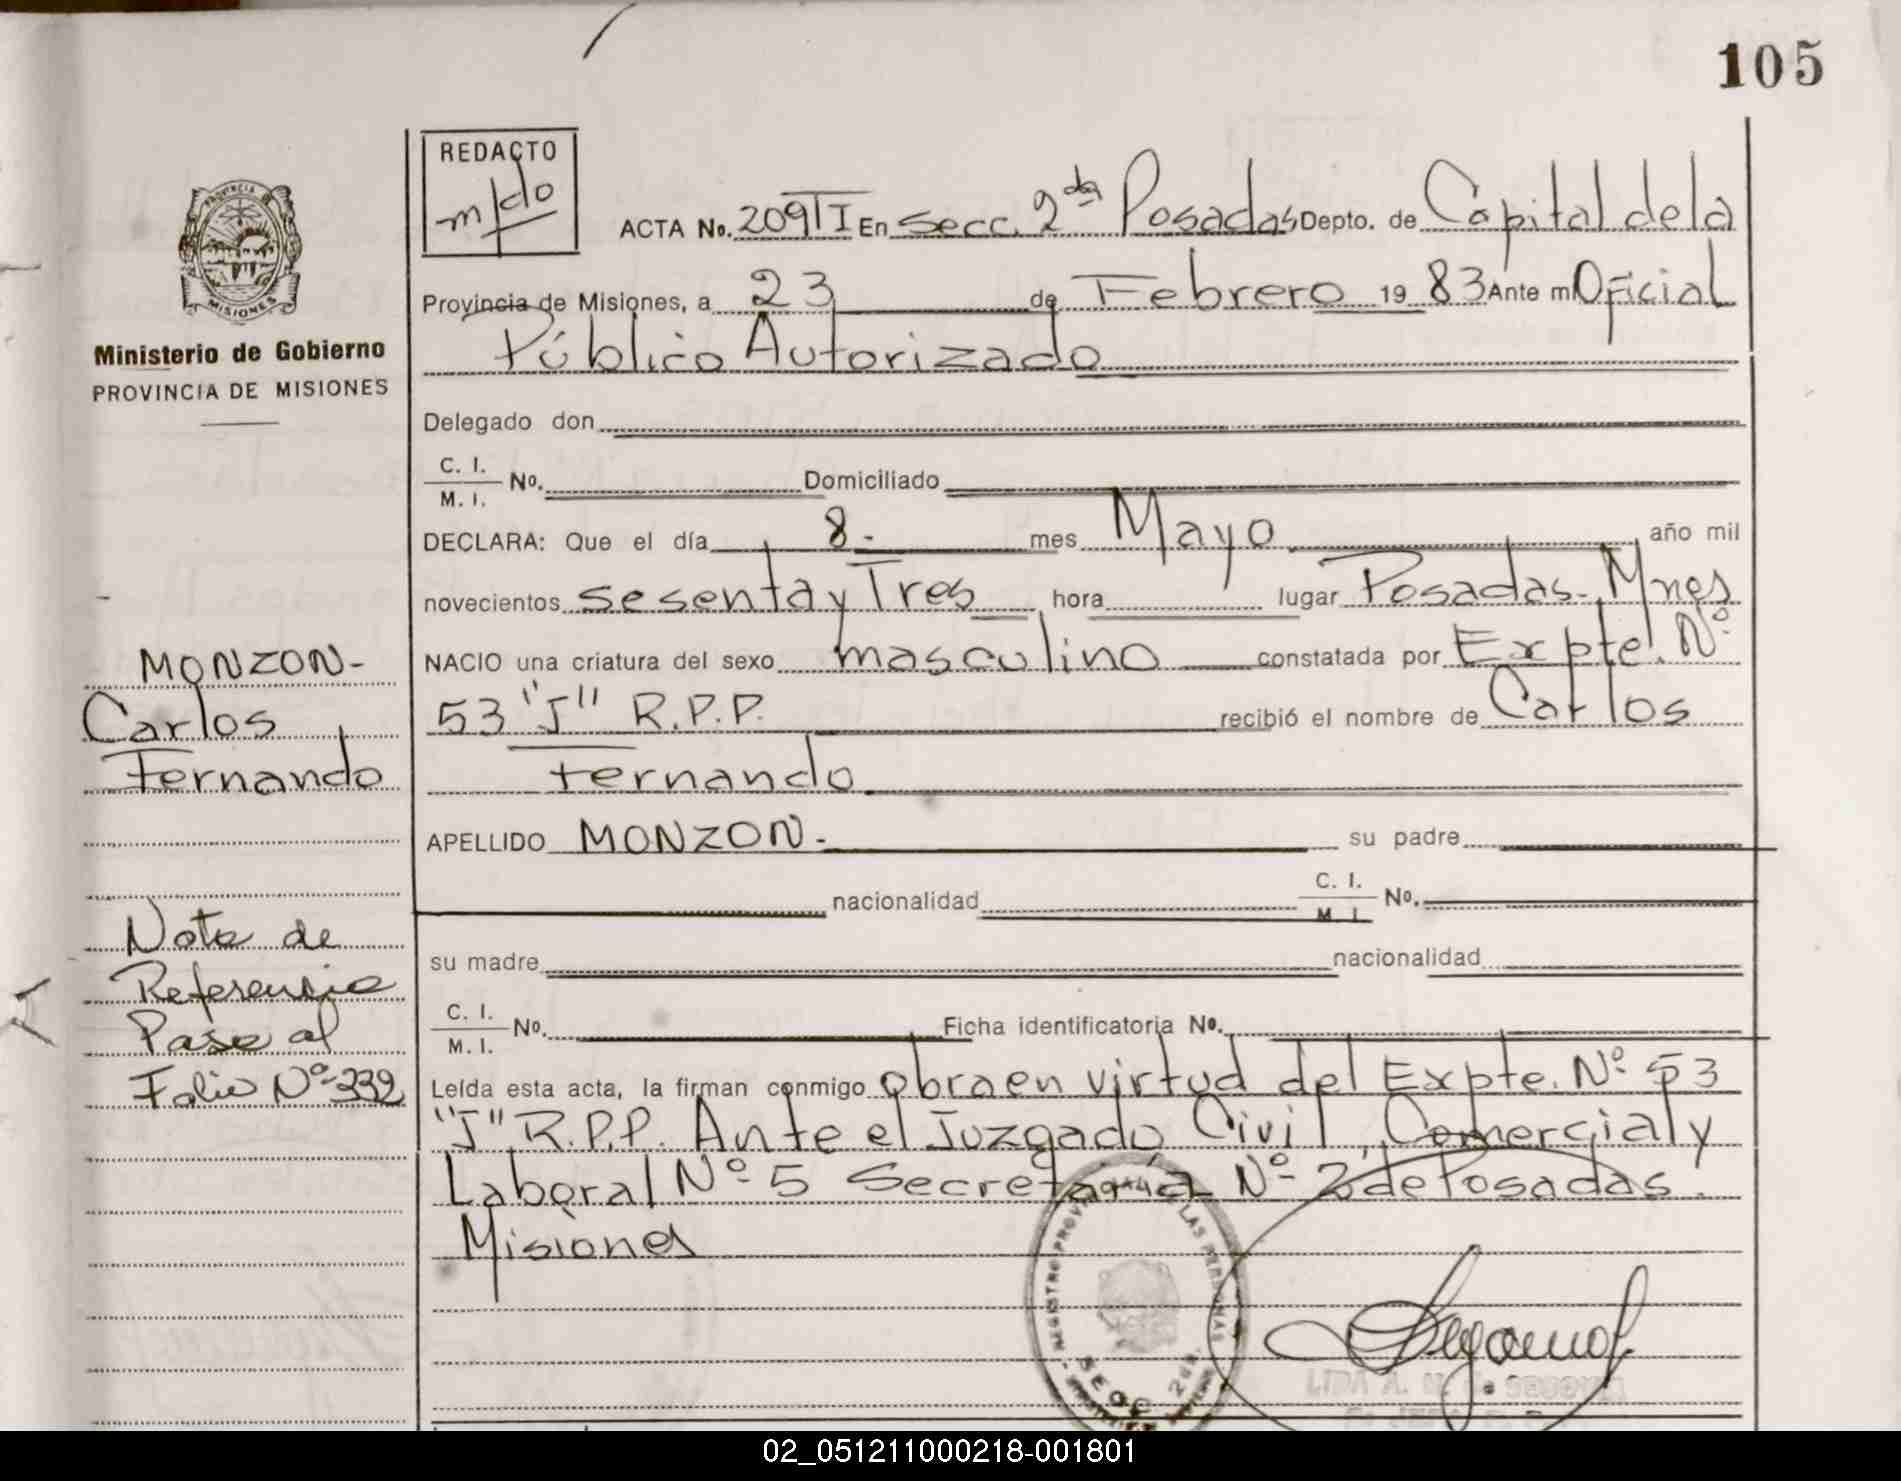 105
REDACTO
m/do
ACTA No. 209 T I En Secc. 2da Posadas Depto. de Capital de la
Provincia de Misiones, a 23 de Febrero 19 83 Ante mí Oficial
Público Autorizado
Delegado don
C. I.
M. I. No. Domiciliado
DECLARA: Que el día 8.- mes Mayo año mil
novecientos sesenta y Tres hora lugar Posadas. Mnes
NACIO una criatura del sexo masculino constatada por Expte. Nº
53 "J" R.P.P. recibió el nombre de Carlos
Fernando
APELLIDO MONZON.- su padre
nacionalidad C. I.
M. I. No.
su madre nacionalidad
C. I.
M. I. No. Ficha identificatoria No.
Leída esta acta, la firman conmigo obra en virtud del Expte. Nº 53
"J" R.P.P. Ante el Juzgado Civil, Comercial y
Laboral Nº 5 Secretaría Nº 2 de Posadas.
Misiones
PROVINCIA DE
MISIONES
Ministerio de Gobierno
PROVINCIA DE MISIONES
MONZON-
Carlos
Fernando
Nota de
Referencia
Pase al
Folio Nº 332
REGISTRO PROVINCIAL DE LAS PERSONAS
SECC 2da.
02_051211000218-001801